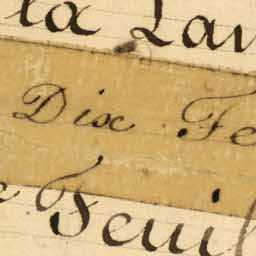 la Lan
Dix Fe
Feuil